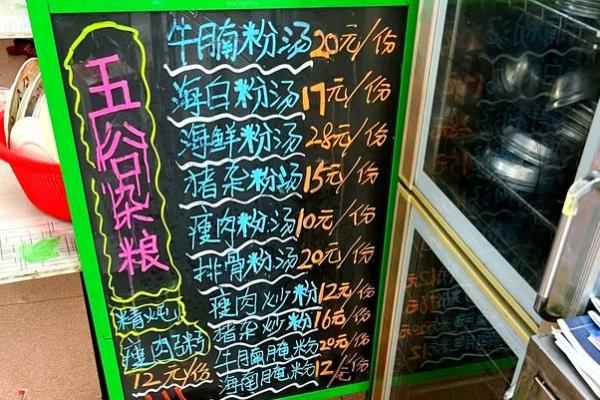 五谷杂粮
牛腩粉汤20元/份
海白粉汤17元/份
海鲜粉汤28元/份
猪杂粉汤15元/份
瘦肉粉汤10元/份
排骨粉汤20元/份
瘦肉炒粉12元/份
猪杂炒粉16元/份
牛腩腌粉20元/份
海南腌粉12元/份
精炖
瘦肉粥
12元/份